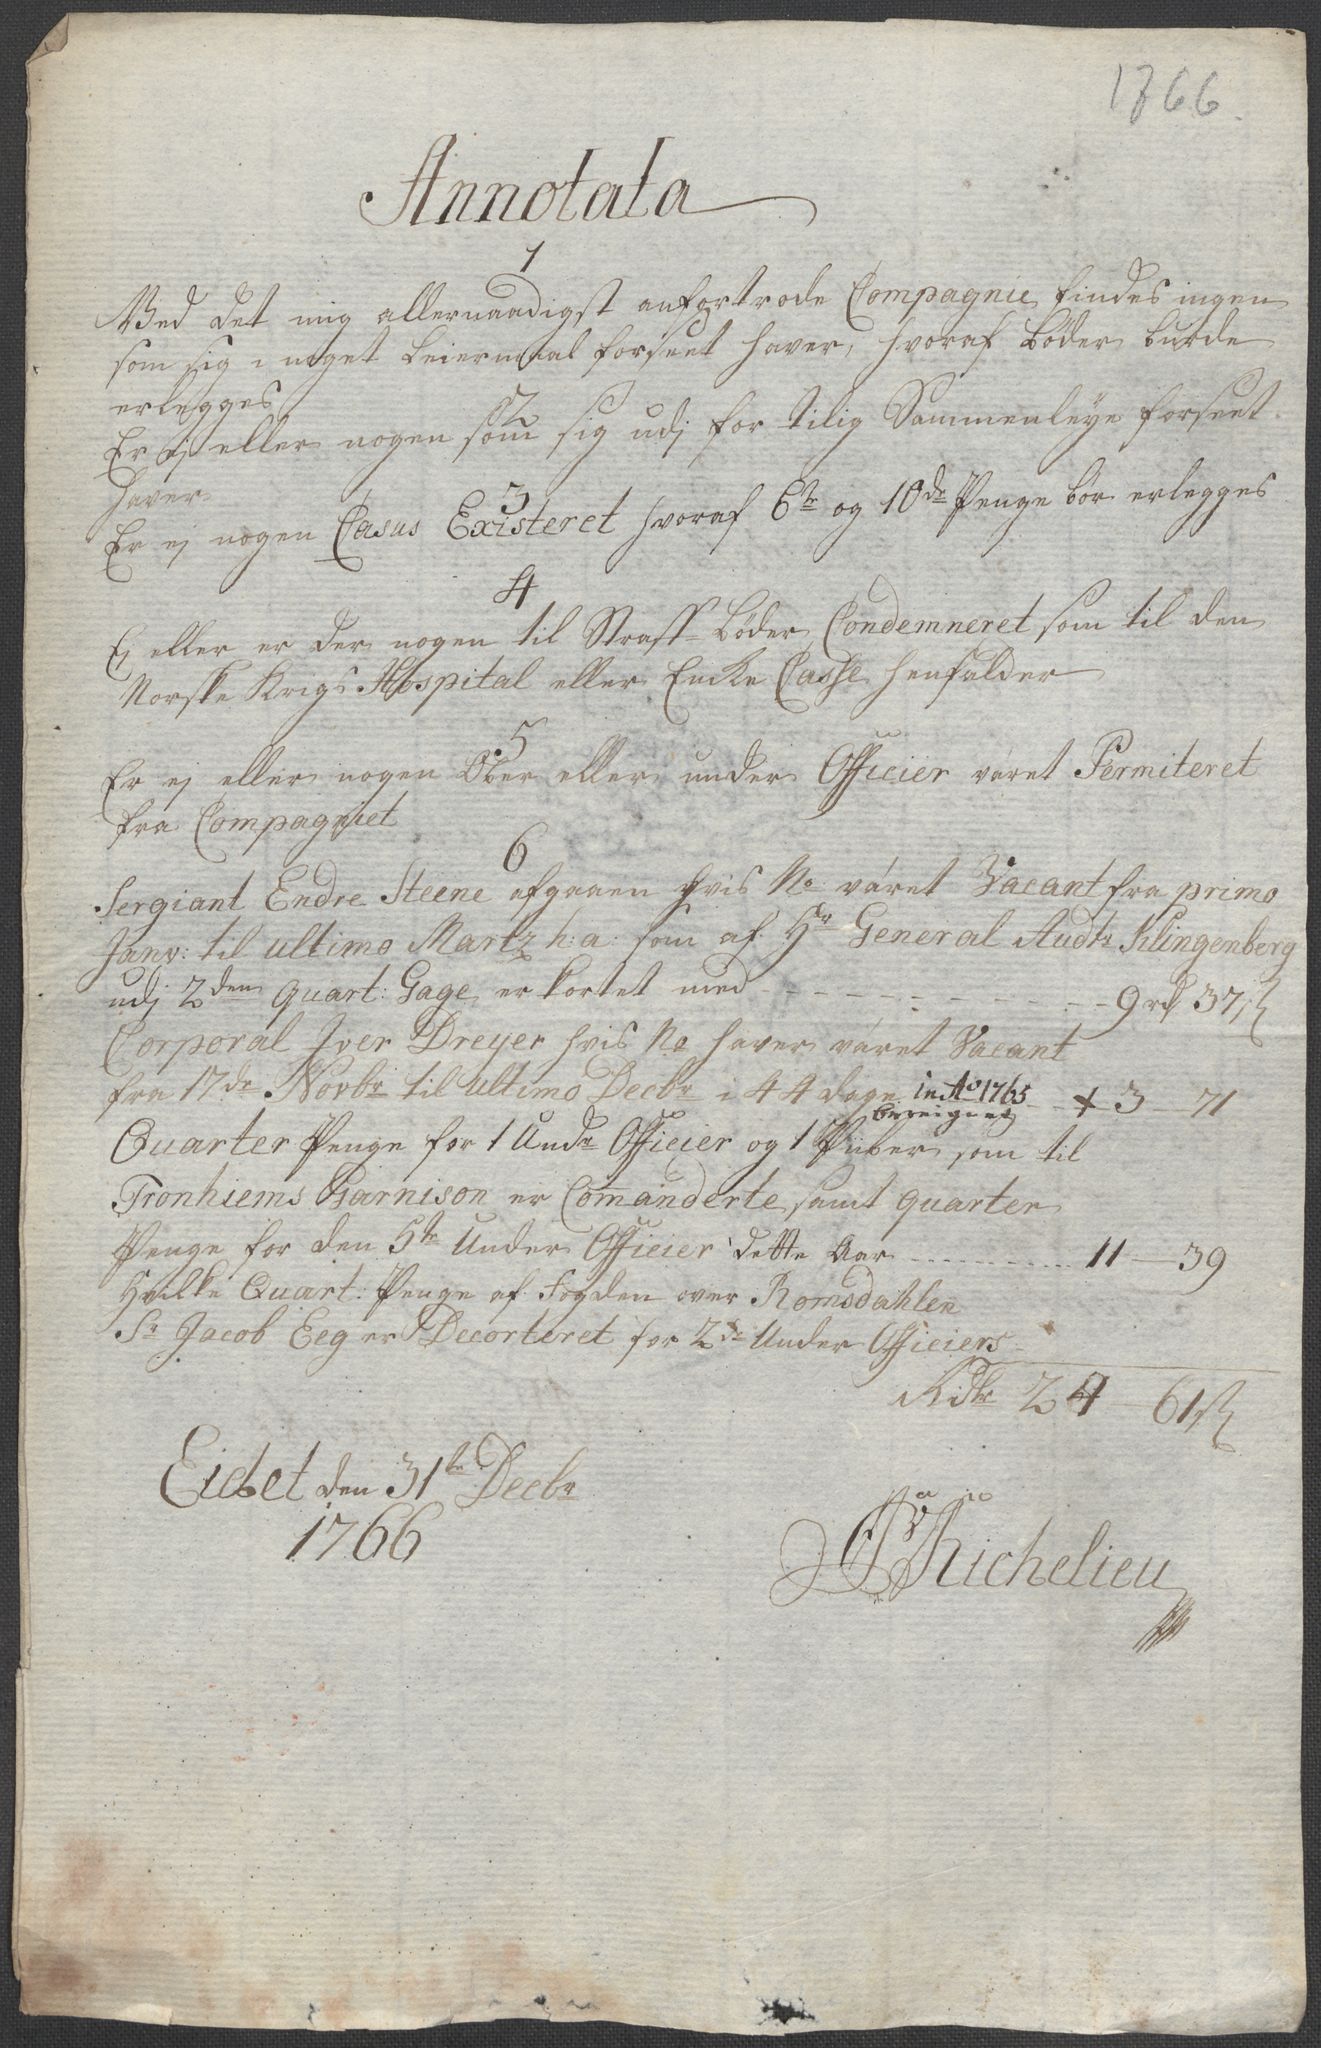 1766
Annotata
1
Wed det mig allernaadigst anfortrode Compagnie findes ingen
som sig i noget Leiermaal forseet haver, hvoraf Böder burde
erlegges
2
Er ej eller nogen som sig udj for tilig Sammenleye forseet
haver
3
Er ej nogen Casus Existeret hvoraf 6te og 10de Penge bör erlegges
4
Ej eller er der nogen til Straff Böder Condemneret som til den
Norske Krigs Hospital eller Encke Casse henfalder
5
Er ej eller nogen Ober eller under Officier været Permiteret
fra Compagniet
6
Sergiant Endre Steene afgaaen hvis No været Vacant fra primo
Janv: til ultimo Martz h: a: som af Hr General Audtr Klingenberg
udj 2den Quart: Gage er kortet med - - - - - - - - 9 rd 37 ß
Corporal Iver Dreyer hvis No haver været Vacant
fra 17de Novbr til ultimo Decbr i 44 dage in Ao 1765 - - + 3 - 71
bereignet
Quarter Penge for 1 Undr Officier og 1 Piiber som til
Tronhiems Garnison er Comanderte samt quarter
Penge for den 5te Under Officier dette Aar .......... 11 - 39
Hvilke Quart: Penge af Fogden over Romsdahlen
Sr Jacob Eeg er Decorteret for 2de Under Officiers
Rdlr 24 - 61 ß
Eidet den 31te Decbr
1766
Richelieu